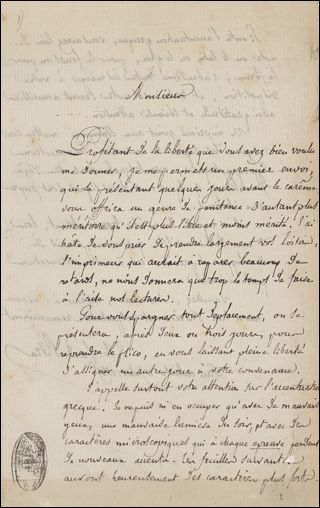 1)
Monsieur
Profitant de la liberté que vous avez bien voulu
me donner, je me permets un premier envoi,
qui se présentant quelques jours avant le carême
vous offrira un genre de pénitence d'autant plus
méritoire qu'il est plus libre et moins mérité. J'ai
hâte de vous prier de prendre largement vos loisirs,
l'imprimeur qui aurait à regagner beaucoup de
retards, ne nous donnera que trop le temps de faire
à l'aise nos lectures.
Pour vous épargner tout déplacement, on se
présentera, après deux ou trois jours, pour
reprendre le plico, en vous laissant pleine liberté
d'assigner un autre jour à votre convenance.
J'appelle surtout votre attention sur l'accentuation
grecque. Je n'puis m'en occuper qu'avec de mauvais
yeux, une mauvaise lumière du soir, et avec des
caractères microscopiques qui à chaque épreuve perdent
de nouveaux accents. Les feuilles suivantes
auront heureusement des caractères plus forts.